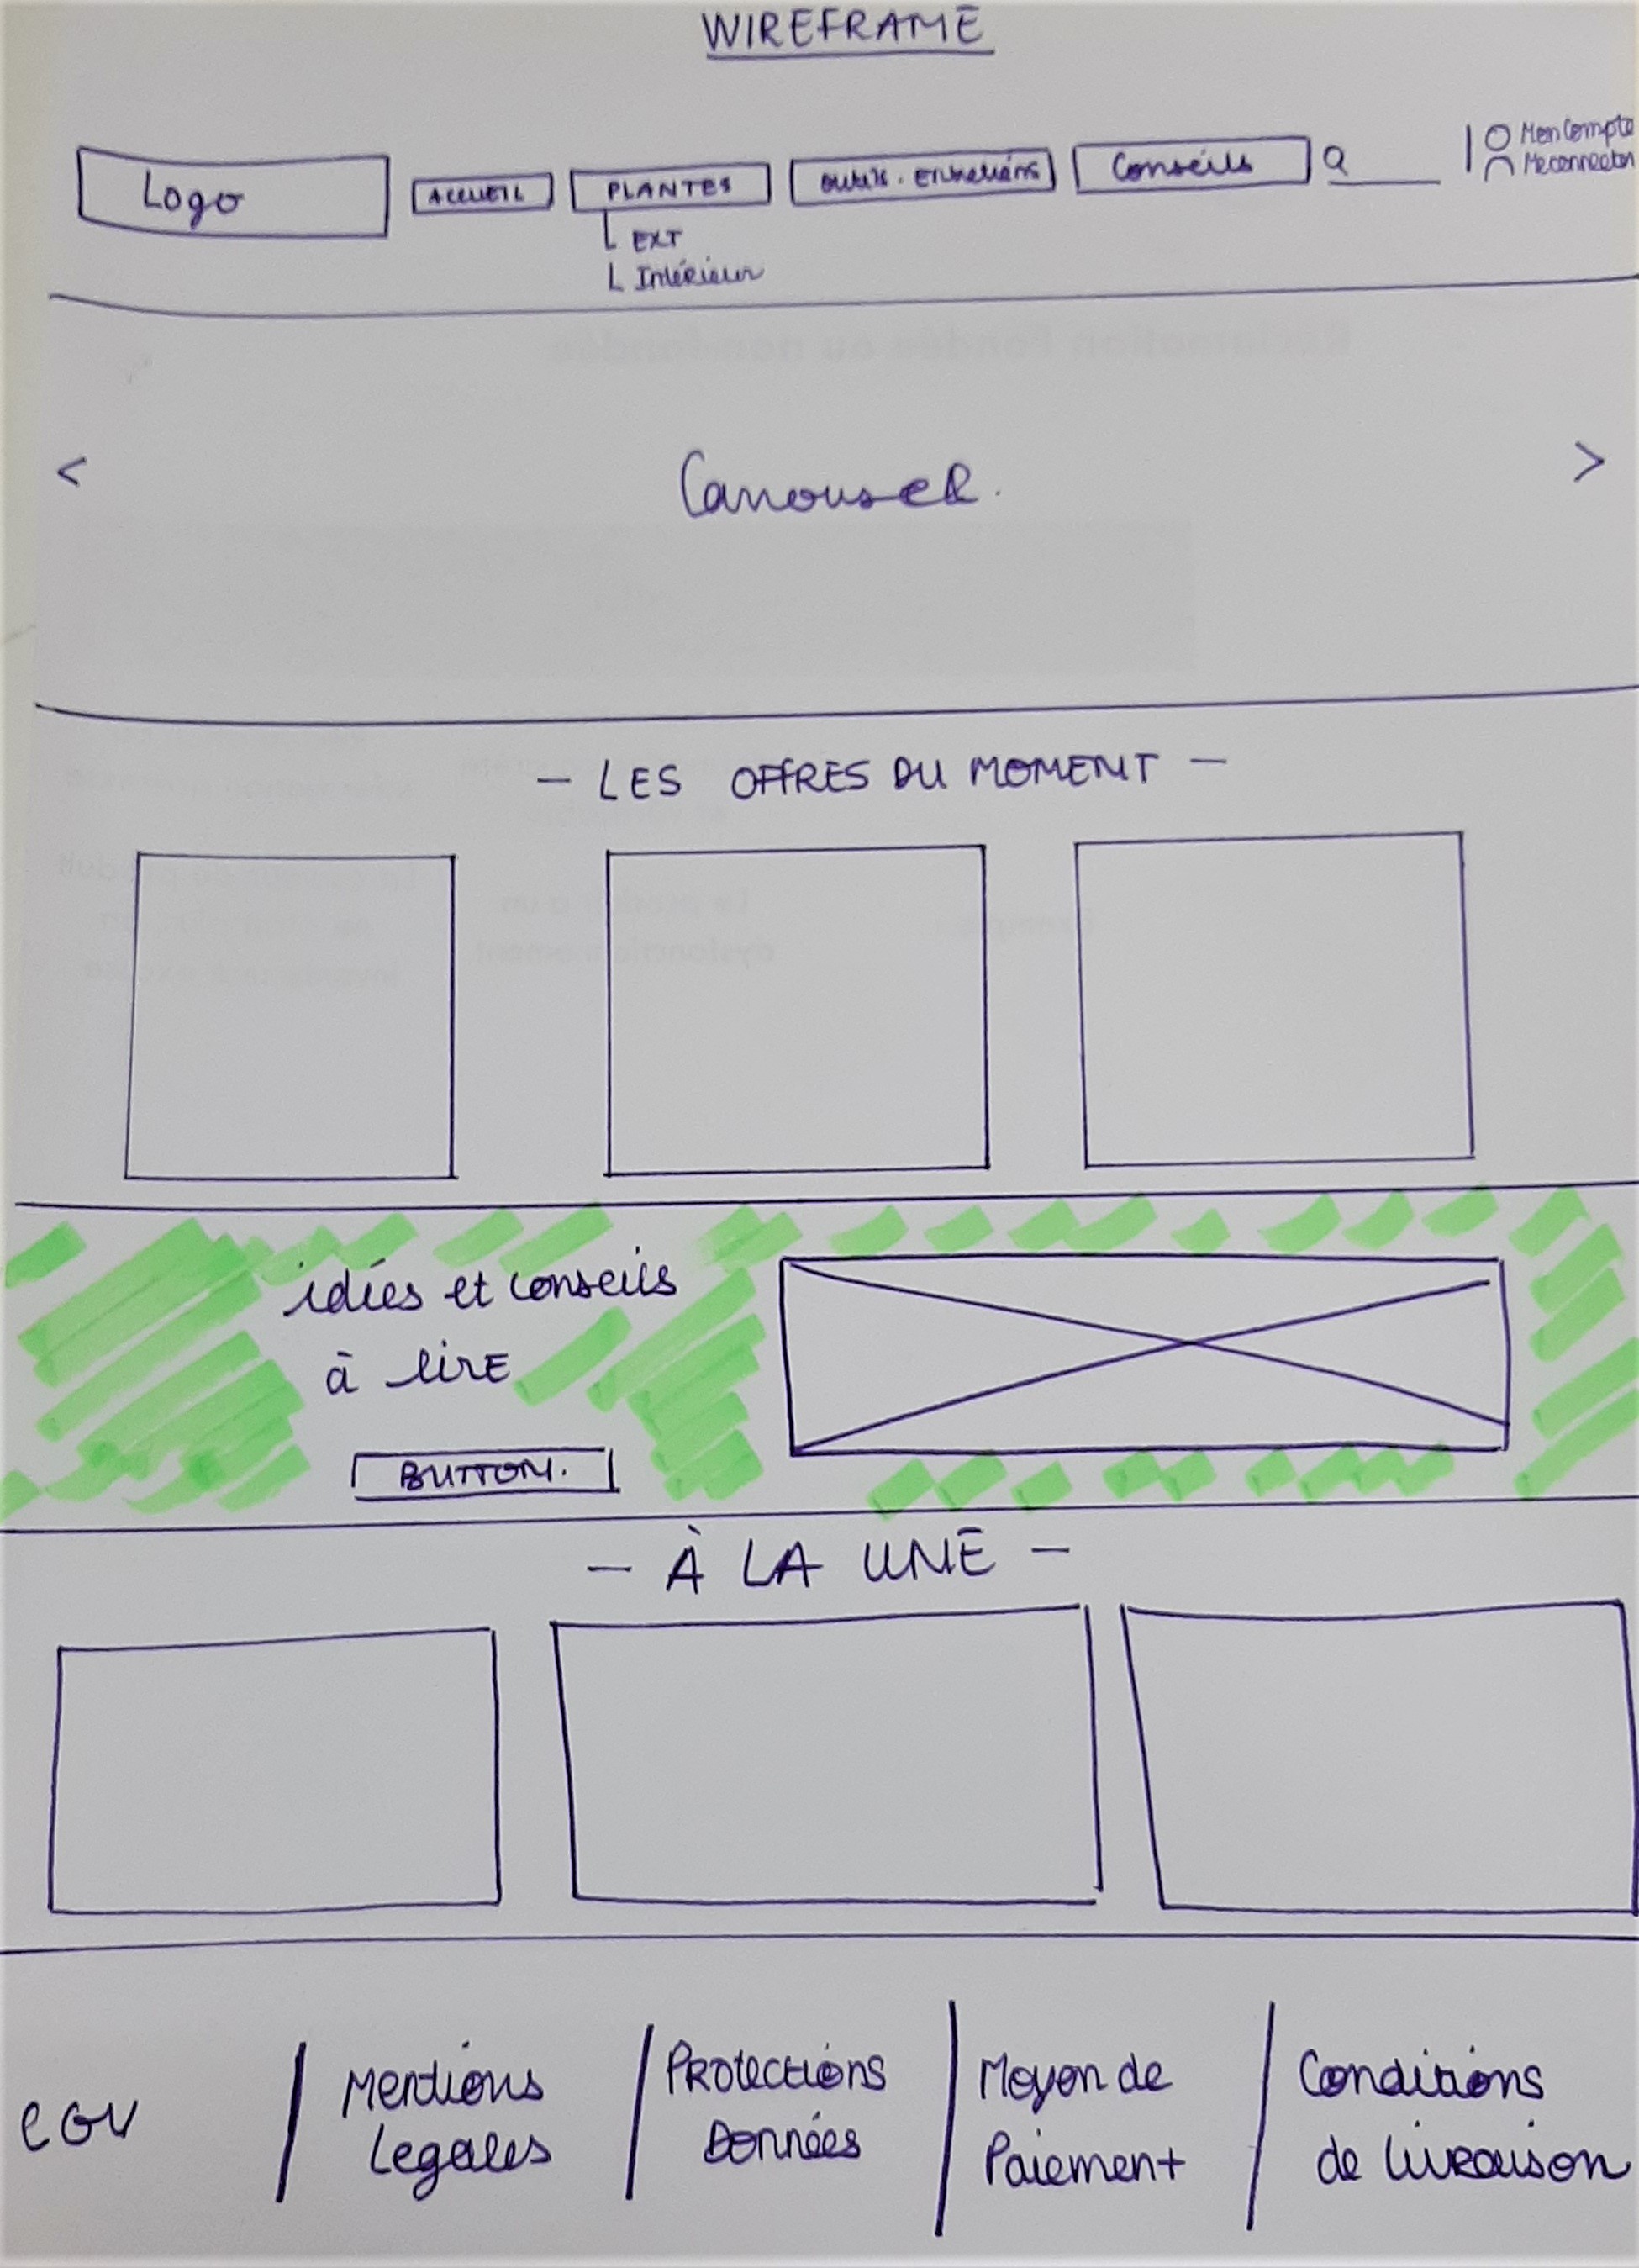 WIREFRAME
Logo
ACCUEIL
PLANTES
Outils. Entretiens
Conseils
Mon Compte
Me connecter
EXT
Intérieur
<
Carrousel.
>
- LES OFFRES DU MOMENT -
idées et conseils
à lire
BUTTON.
- À LA UNE -
CGV
Mentions
Legales
Protections
Données
Moyen de
Paiement
Conditions
de livraison